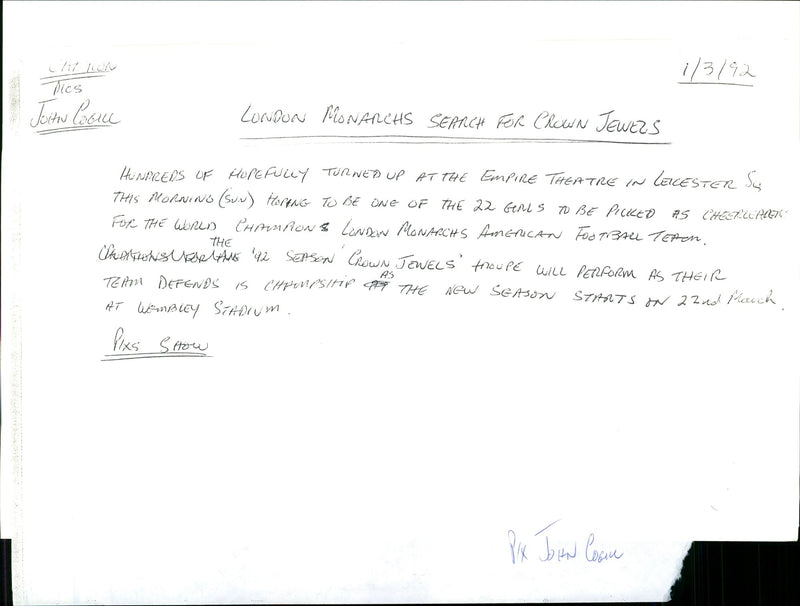 CAPTION
PICS
JOHN COGILL
1/3/92
LONDON MONARCHS SEARCH FOR CROWN JEWELS
HUNDREDS OF HOPEFULLY TURNED UP AT THE EMPIRE THEATRE IN LEICESTER SQ
THIS MORNING (SUN) HOPING TO BE ONE OF THE 22 GIRLS TO BE PICKED AS CHEERLEADERS
FOR THE WORLD CHAMPIONS LONDON MONARCHS AMERICAN FOOTBALL TEAM.
THE '92 SEASON 'CROWN JEWELS' TROUPE WILL PERFORM AS THEIR
TEAM DEFENDS IS CHAMPSHIP AS THE NEW SEASON STARTS ON 22nd March
AT WEMBLEY STADIUM.
PIXS SHOW
PIX JOHN COGILL